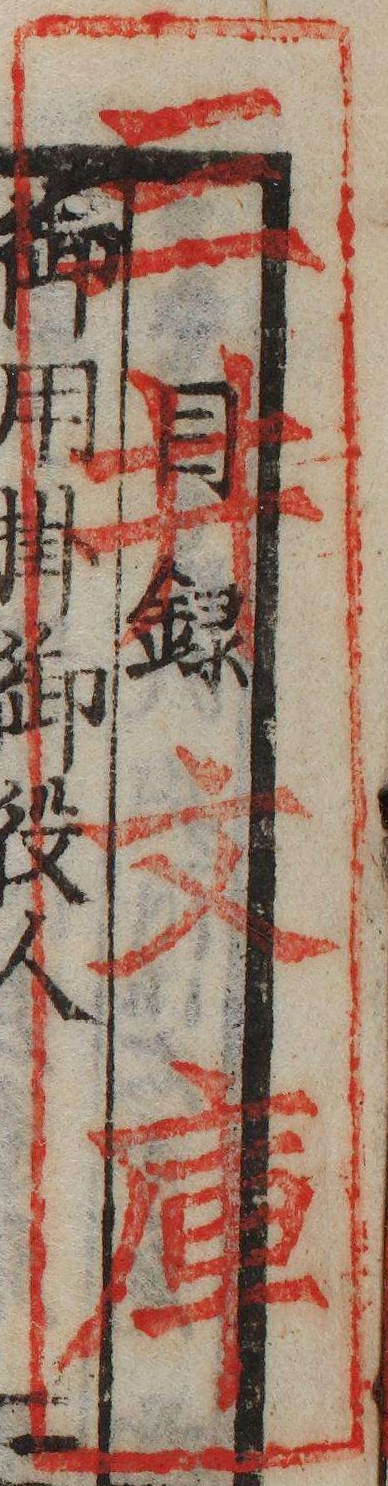 三井文庫
目錄
御用掛御役人